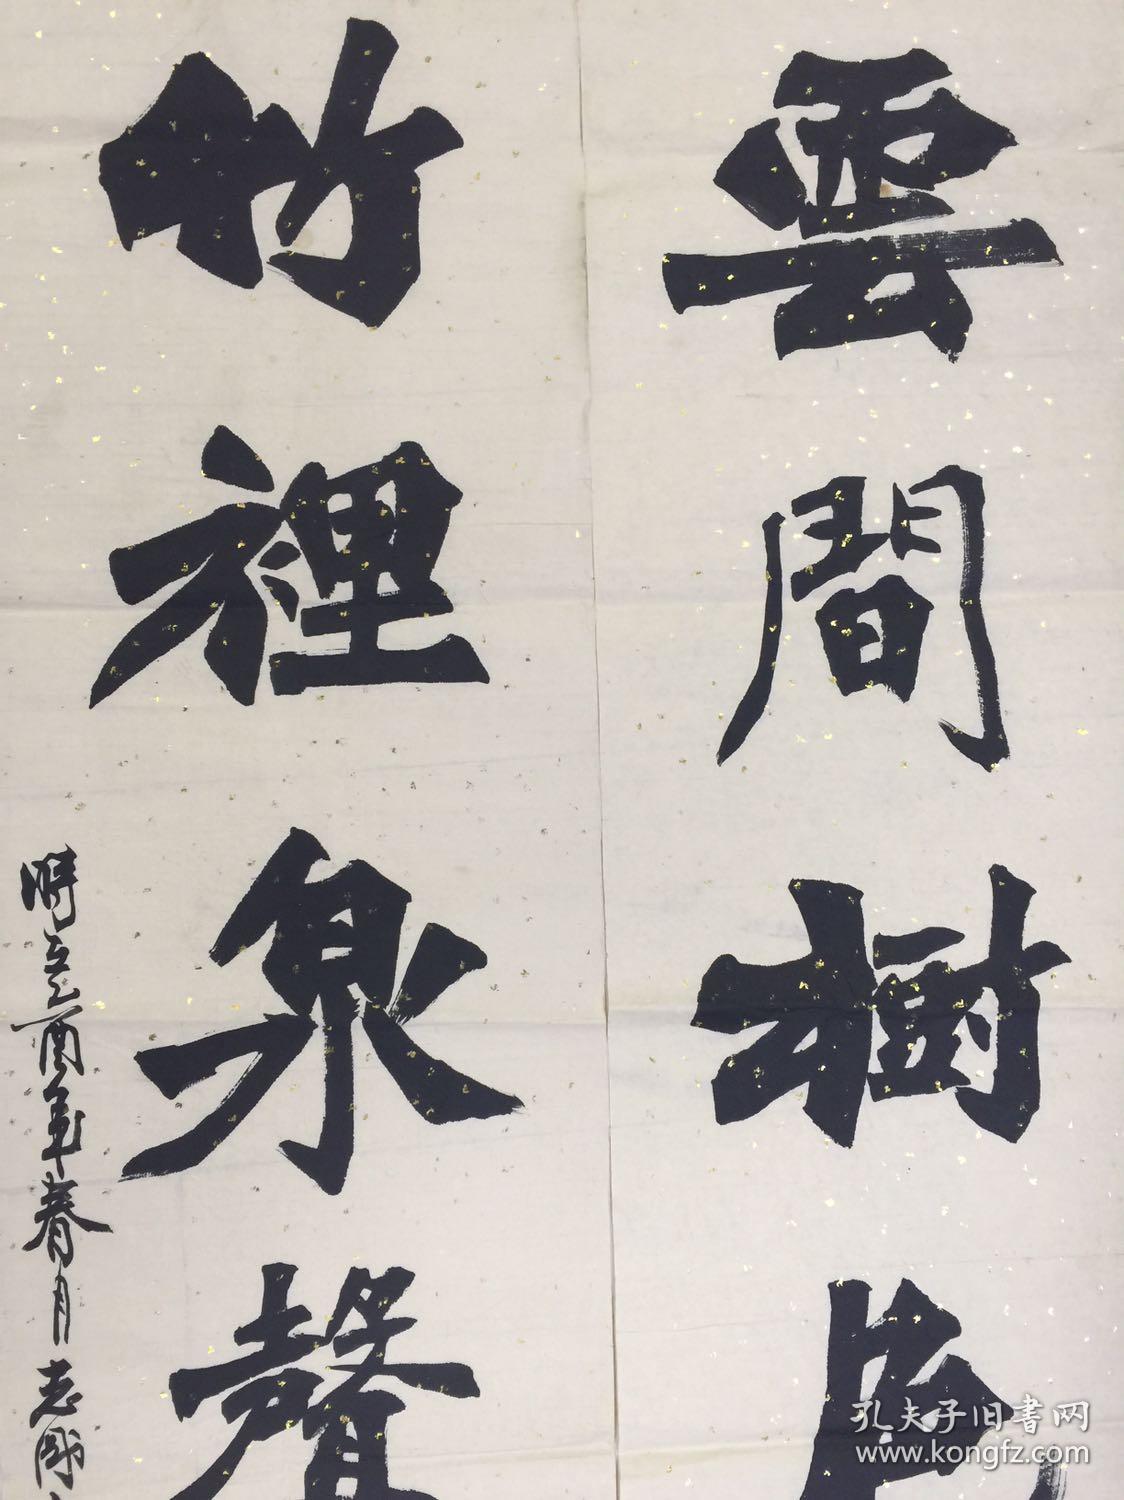 雲間樹色
竹裡泉聲
時在乙酉年春月志
孔夫子旧書网
www.kongfz.com